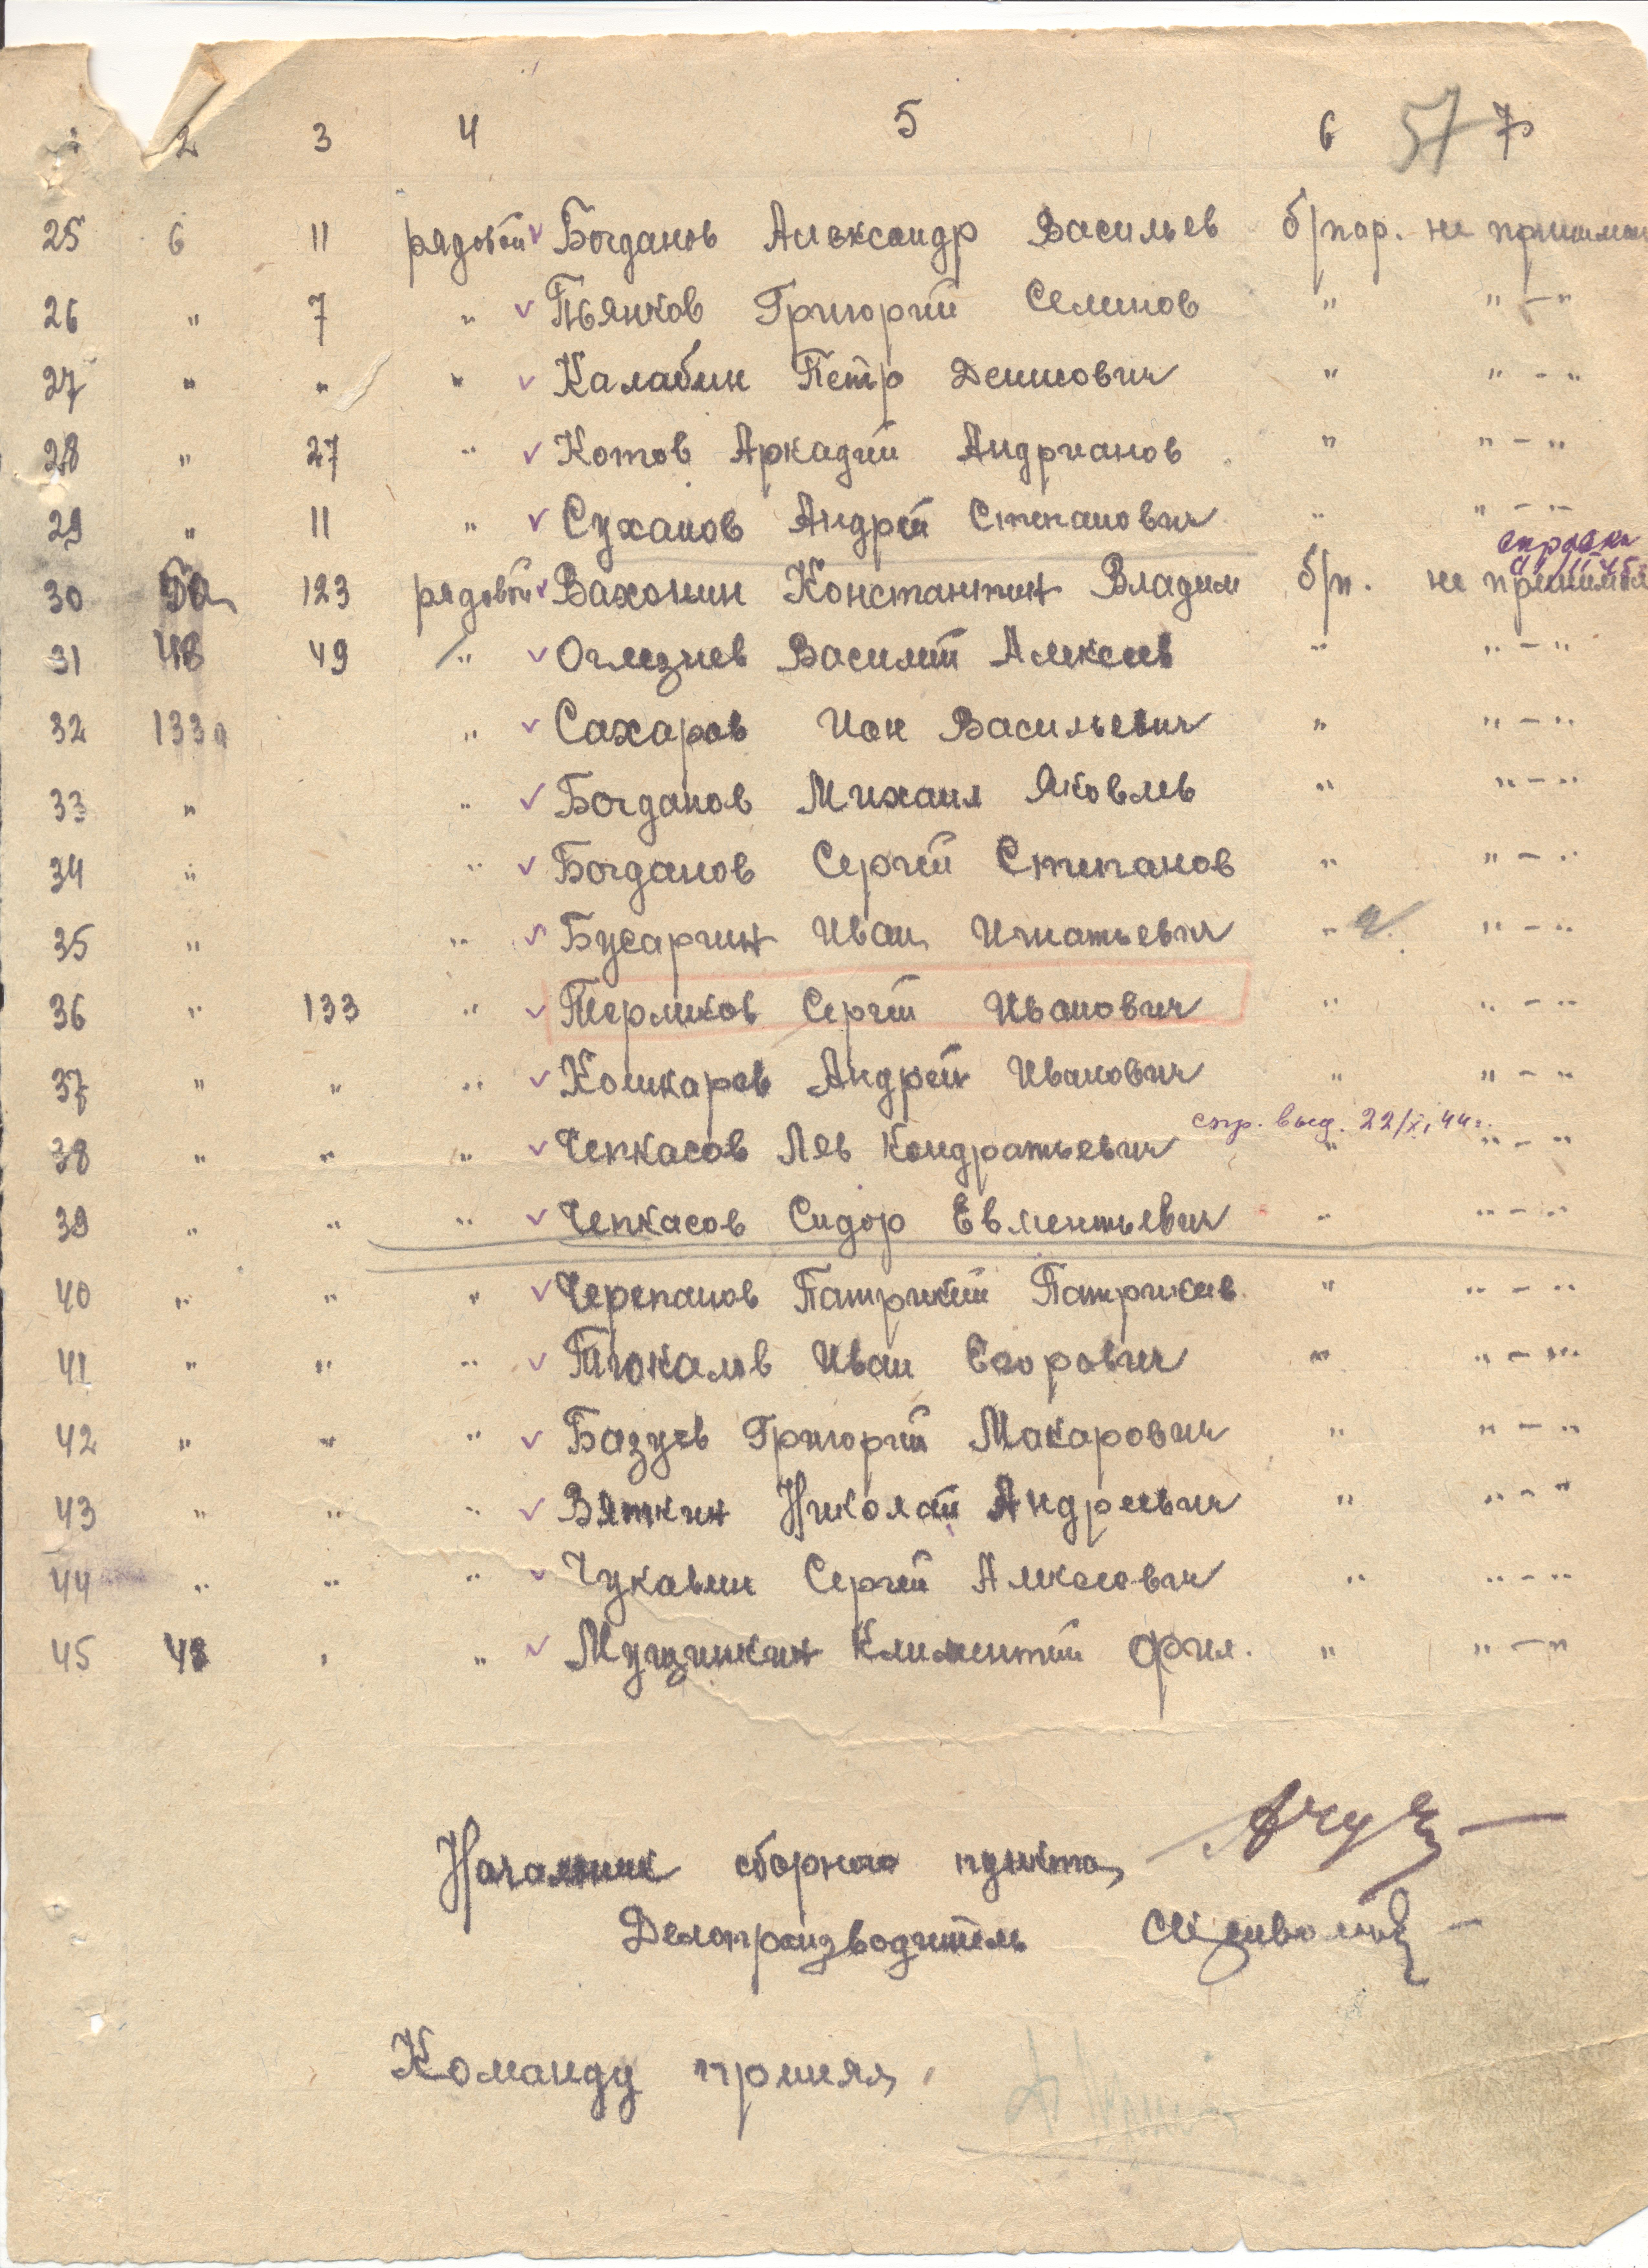 2 3 4 5 6 57 7
25 6 11 рядовой Богданов Александр Васильев б/пар. не принимал
26 " 7 " Пьянков Григорий Семенов " " - "
27 " " " Калабин Петр Денисович " " - "
28 " 27 " Котов Аркадий Андрианов " " - "
29 " 11 " Суханов Андрей Степанович " " - "
справка
30 50 123 рядовой Вахонин Константин Владим б/п. не принимал
31 48 49 " Оглезнев Василий Алексеев " " - "
32 133а " Сахаров Ион Васильевич " " - "
33 " " Богданов Михаил Яковлев " " - "
34 " " Богданов Сергей Степанов " " - "
35 " " Бусаргин Иван Игнатьевич " " - "
36 " 133 " Термиков Сергей Иванович " " - "
37 " " " Кошкаров Андрей Иванович " " - "
спр. выд. 22/XI 44г.
38 " " " Чепкасов Лев Кондратьевич " " - "
39 " " " Чепкасов Сидор Евментьевич " " - "
40 " " " Черепанов Патрикей Патрикеев. " " - "
41 " " " Тюкалов Иван Егорович " " - "
42 " " " Базуев Григорий Макарович " " - "
43 " " " Вяткин Николай Андреевич " " - "
44 " " " Чукавин Сергей Алексеевич " " - "
45 48 " " Мущинкин Климентий Фил. " " - "
Начальник сборного пункта
Делопроизводитель
Команду принял